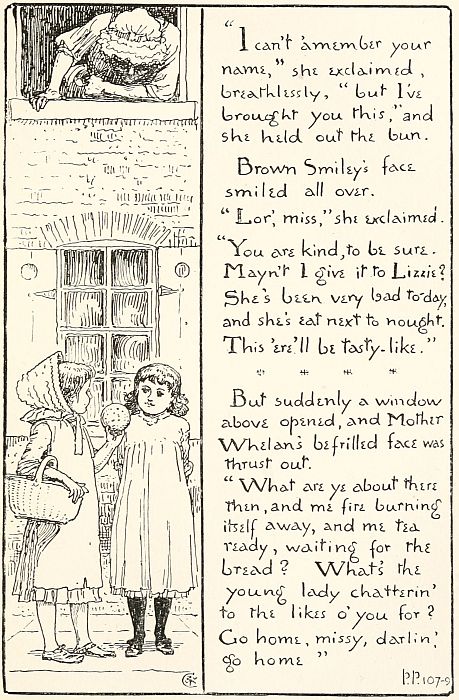 "I can't 'amember your
name," she exclaimed,
breathlessly, "but I've
brought you this," and
she held out the bun.
Brown Smiley's face
smiled all over.
"Lor', miss," she exclaimed.
"You are kind, to be sure.
Mayn't I give it to Lizzie?
She's been very bad to-day,
and she's eat next to nought.
This 'ere'll be tasty-like."
* * * *
But suddenly a window
above opened, and Mother
Whelan's befrilled face was
thrust out.
"What are ye about there
then, and me fire burning
itself away, and me tea
ready, waiting for the
bread? What's the
young lady chatterin'
to the likes o' you for?
Go home, missy, darlin',
go home"
P.P. 107-9